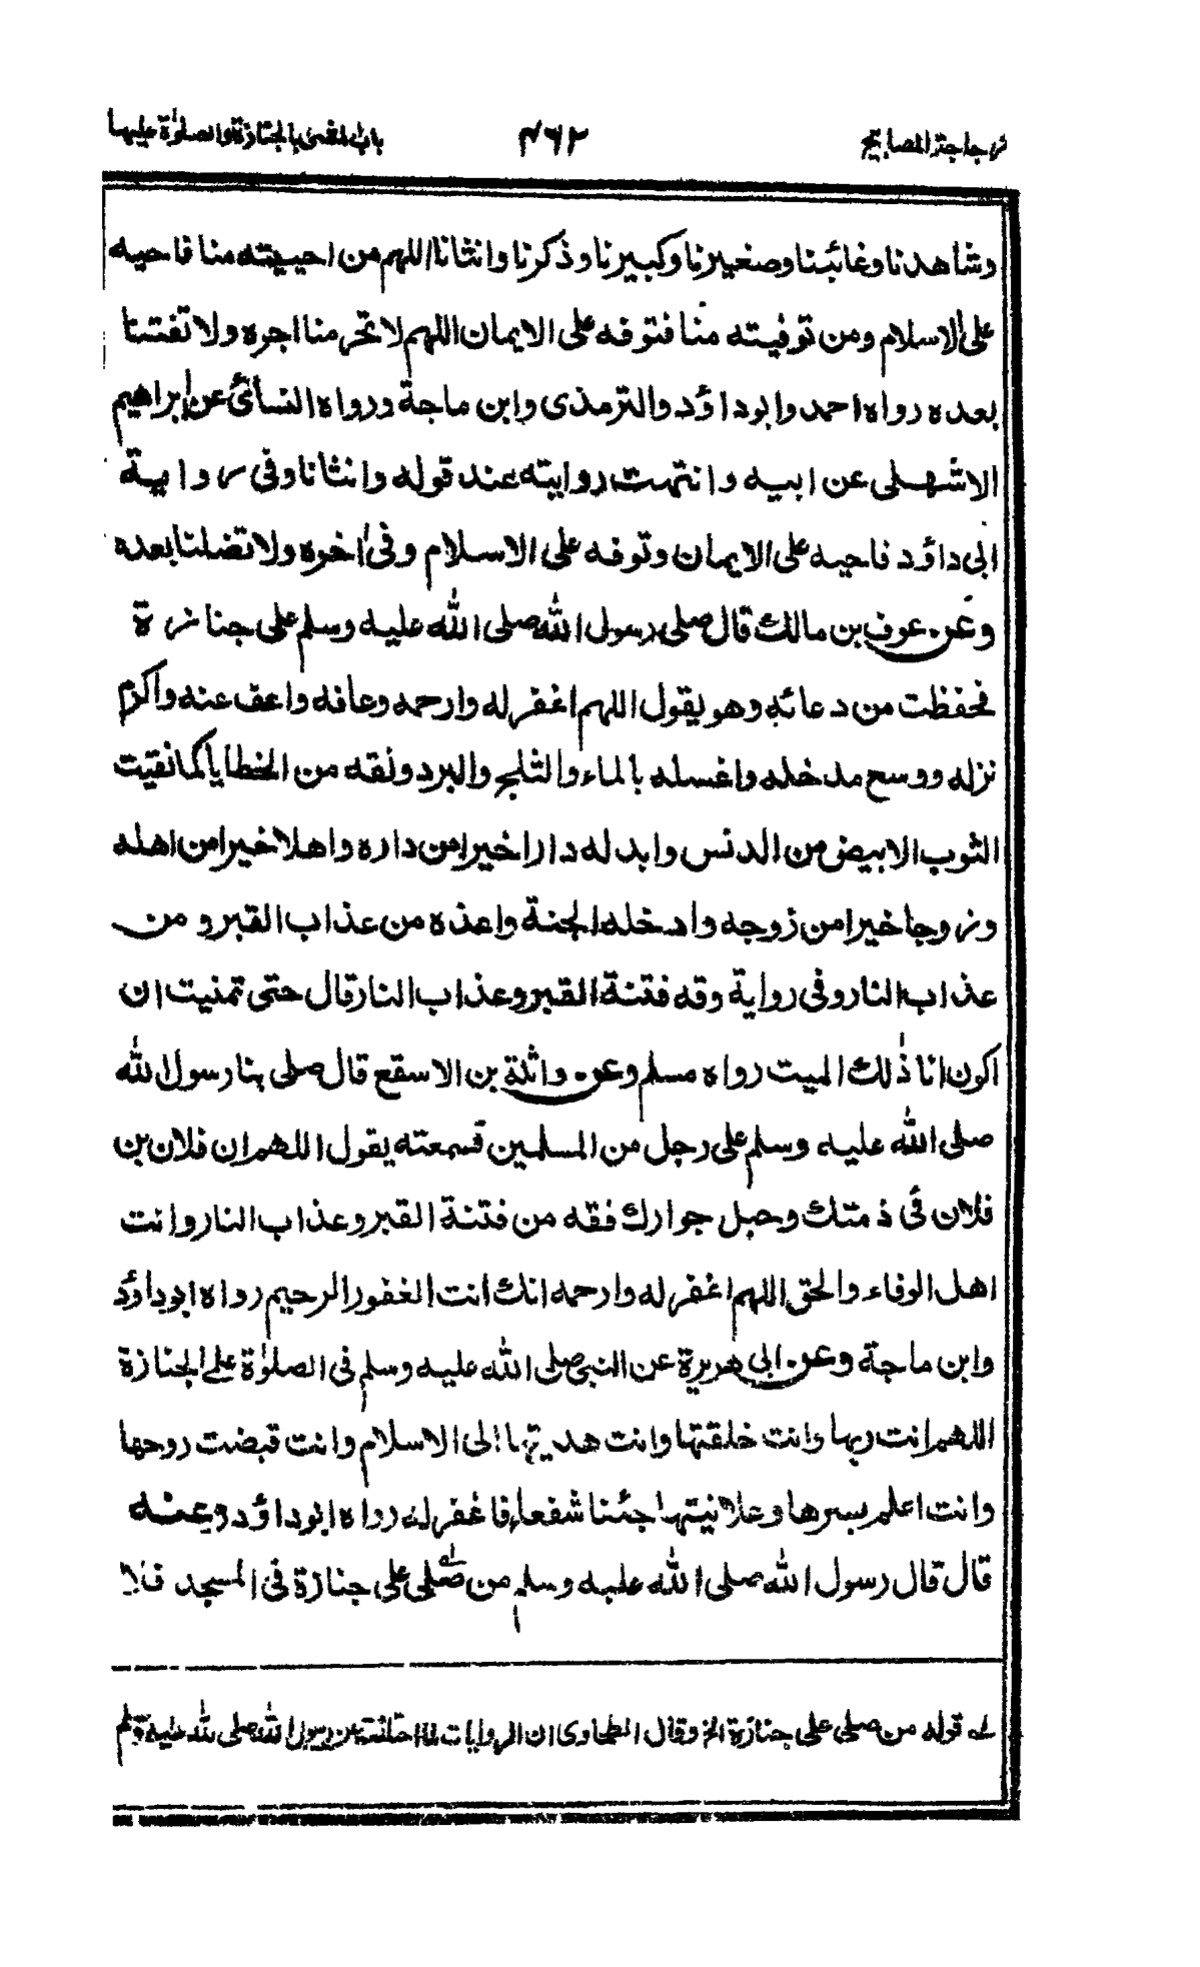 زجاجة المصابيح ۴۶۲ باب المشی بالجنازة والصلوٰة علیها
وشاهدنا وغائبنا وصغیرنا وکبیرنا وذکرنا وانثانا اللهم من احییته منا فاحیه
علی الاسلام ومن توفیته منا فتوفه علی الایمان اللهم لا تحرمنا اجره ولا تفتنا
بعده رواه احمد وابو داؤد والترمذی وابن ماجة ورواه النسائی عن ابراهیم
الاشهلی عن ابیه وانتهت روایته عند قوله وانثانا وفی روایة
ابی داؤد فاحیه علی الایمان وتوفه علی الاسلام وفی اٰخره ولا تضلنا بعده
وعن عوف بن مالك قال صلی رسول الله صلی الله علیه وسلم علی جنازة
فحفظت من دعائه وهو یقول اللهم اغفر له وارحمه وعافه واعف عنه واکرم
نزله ووسع مدخله واغسله بالماء والثلج والبرد ونقه من الخطایا کما نقیت
الثوب الابیض من الدنس وابدله دارا خیرا من داره واهلا خیرا من اهله
وزوجا خیرا من زوجه وادخله الجنة واعذه من عذاب القبر ومن
عذاب النار وفی روایة وقه فتنة القبر وعذاب النار قال حتی تمنیت ان
اکون انا ذٰلك المیت رواه مسلم وعن واثلة بن الاسقع قال صلی بنا رسول الله
صلی الله علیه وسلم علی رجل من المسلمین فسمعته یقول اللهم ان فلان بن
فلان فی ذمتك وحبل جوارك فقه من فتنة القبر وعذاب النار وانت
اهل الوفاء والحق اللهم اغفر له وارحمه انك انت الغفور الرحیم رواه ابو داؤد
وابن ماجة وعن ابی هریرة عن النبی صلی الله علیه وسلم فی الصلوٰة علی الجنازة
اللهم انت ربها وانت خلقتها وانت هدیتها الی الاسلام وانت قبضت روحها
وانت اعلم بسرها وعلانیتها جئنا شفعاء فاغفر له رواه ابو داؤد وعنه
قال قال رسول الله صلی الله علیه وسلم من صلی علی جنازة فی المسجد فلا
له قوله من صلی علی جنازة الخ وقال الطحاوی ان الروایات لما اختلفت عن رسول الله صلی الله علیه وسلم